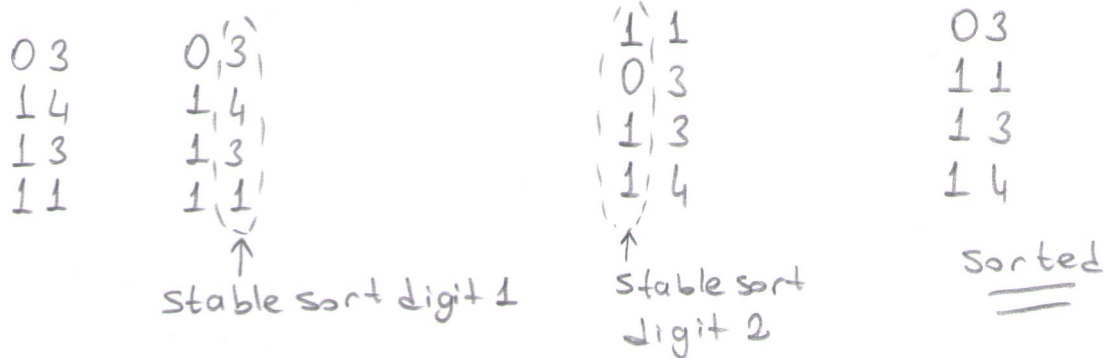 03
14
13
11
03
14
13
11
stable sort digit 1
11
03
13
14
stable sort
digit 2
03
11
13
14
sorted